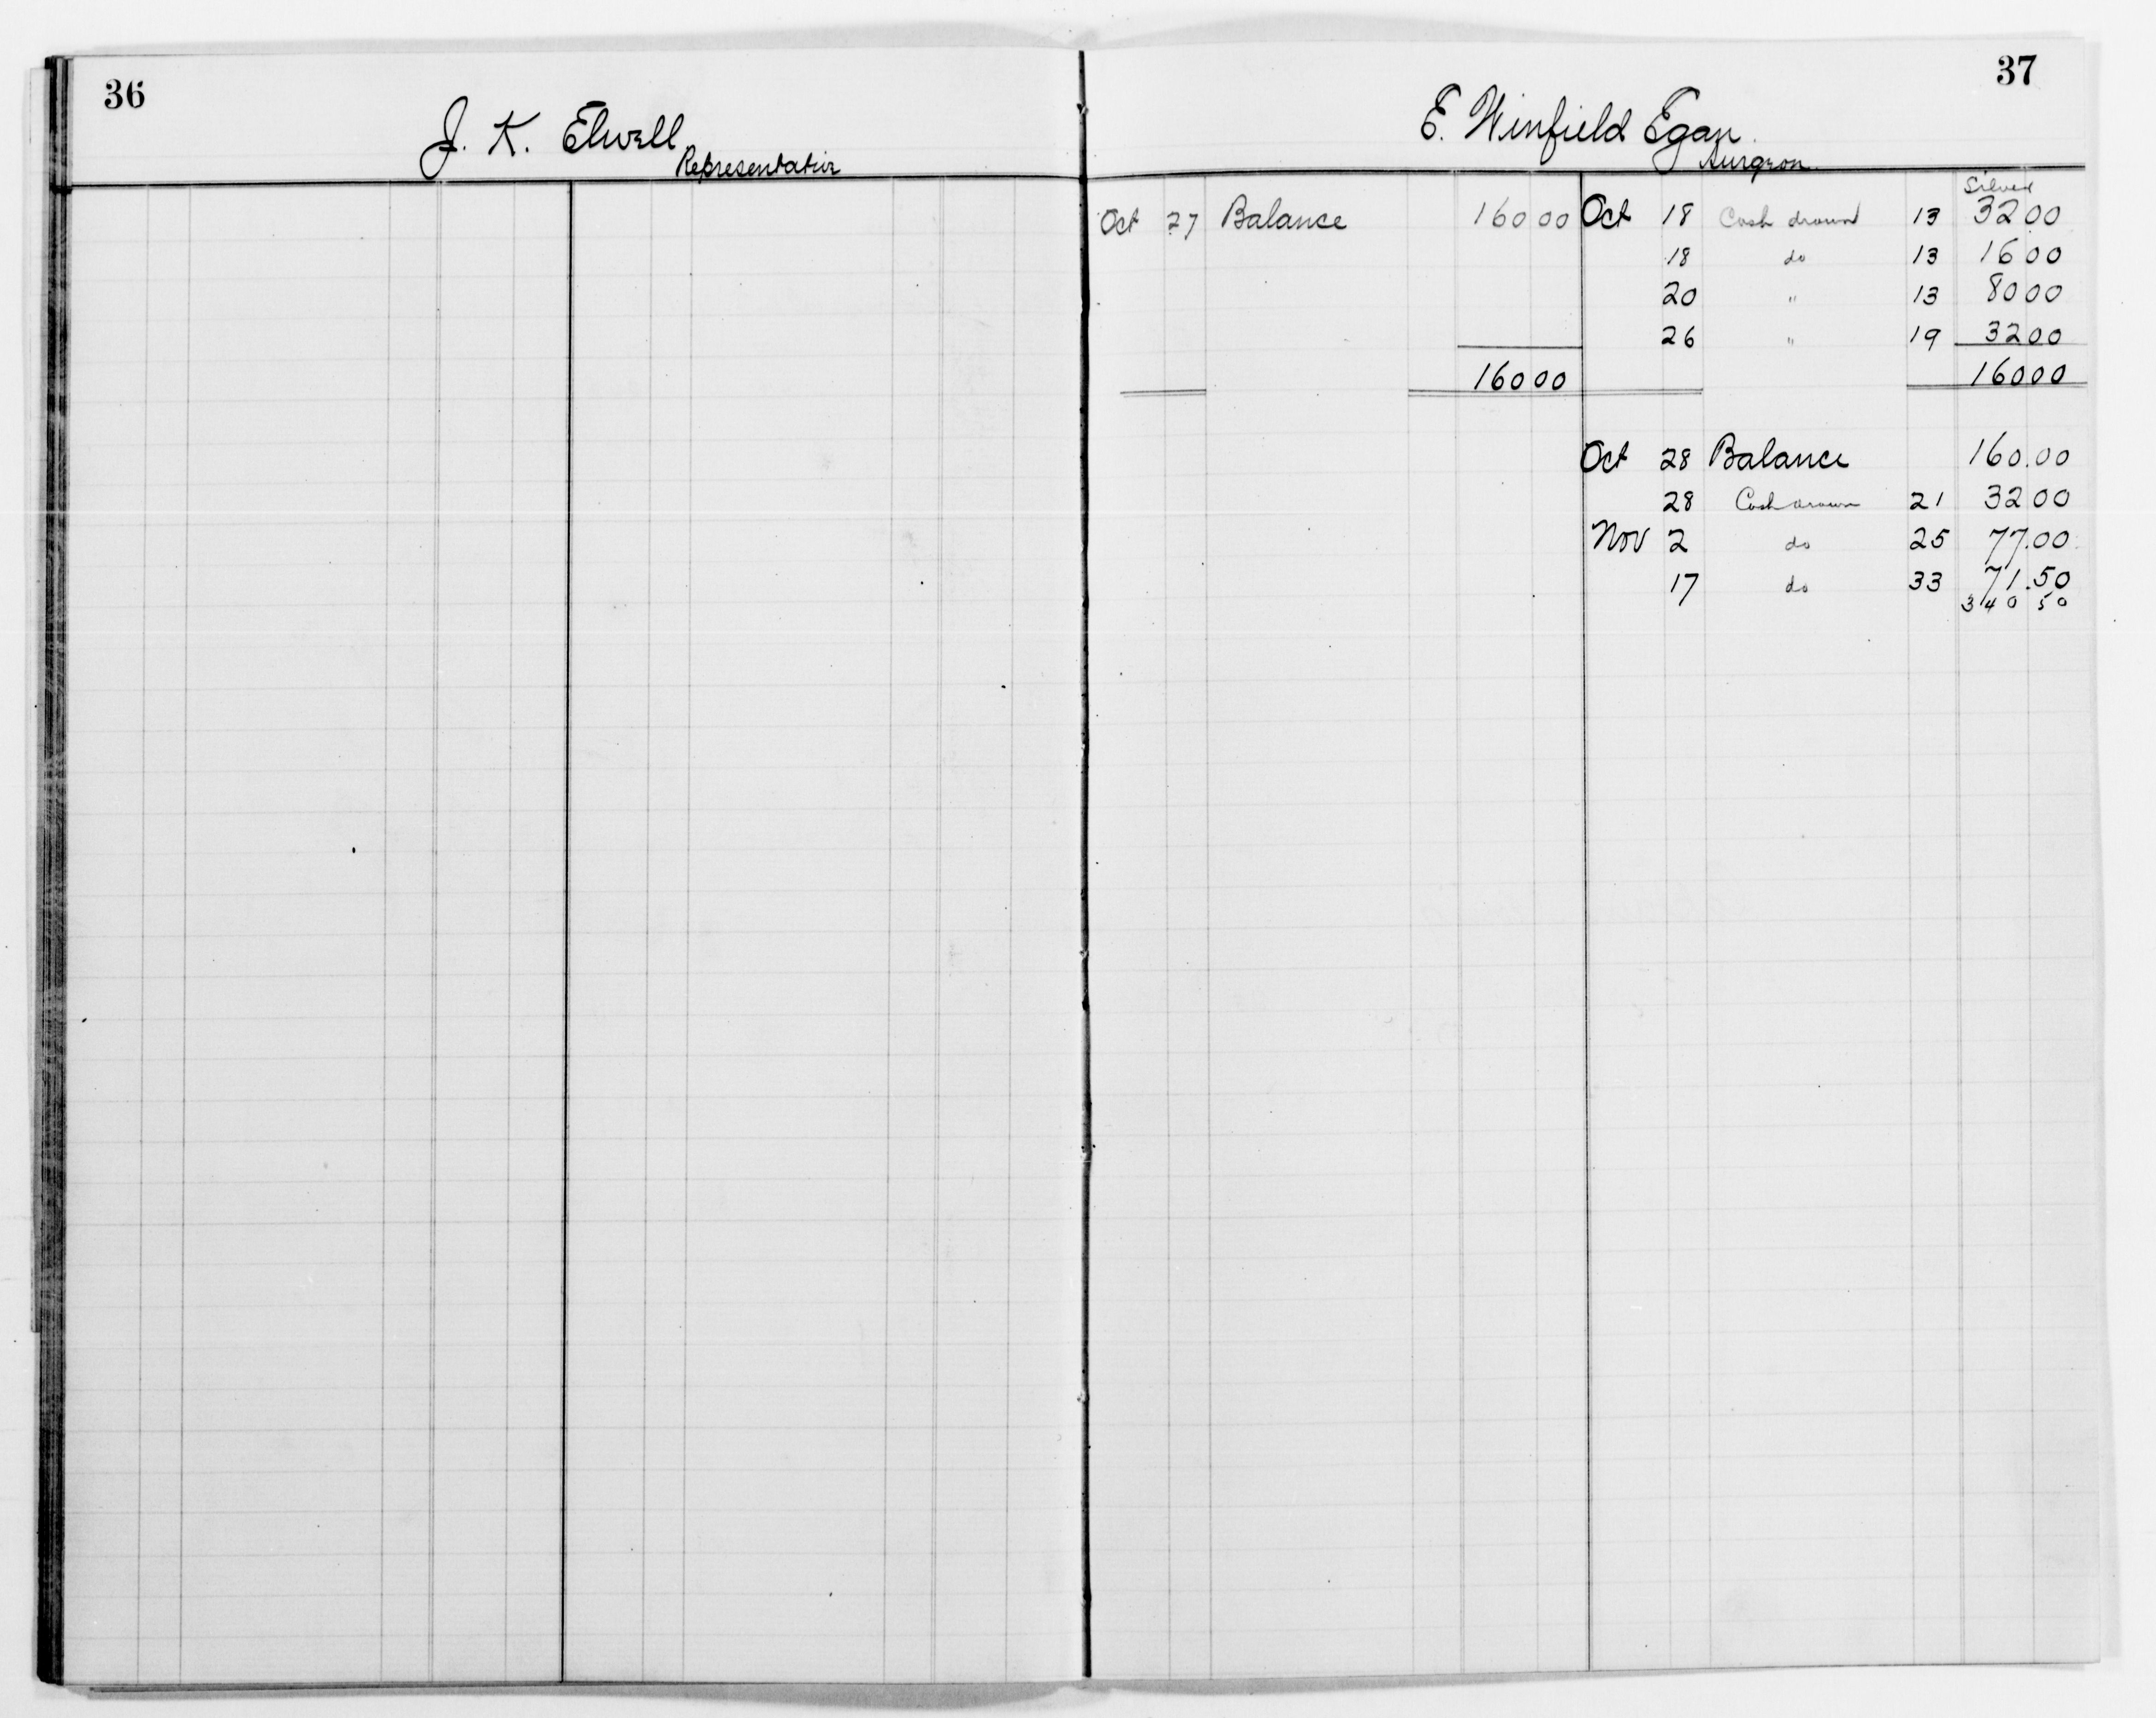 36
J. K. Elwell
Representative
37
E. Winfield Egan.
Surgeon.
Silver
Oct 27 Balance 160 00 Oct 18 Cash drawn 13 32 00
18 do 13 16 00
20 " 13 80 00
26 " 19 32 00
160 00 160 00
Oct 28 Balance 160.00
28 Cash drawn 21 32 00
Nov 2 do 25 77.00
17 do 33 71.50
340 50